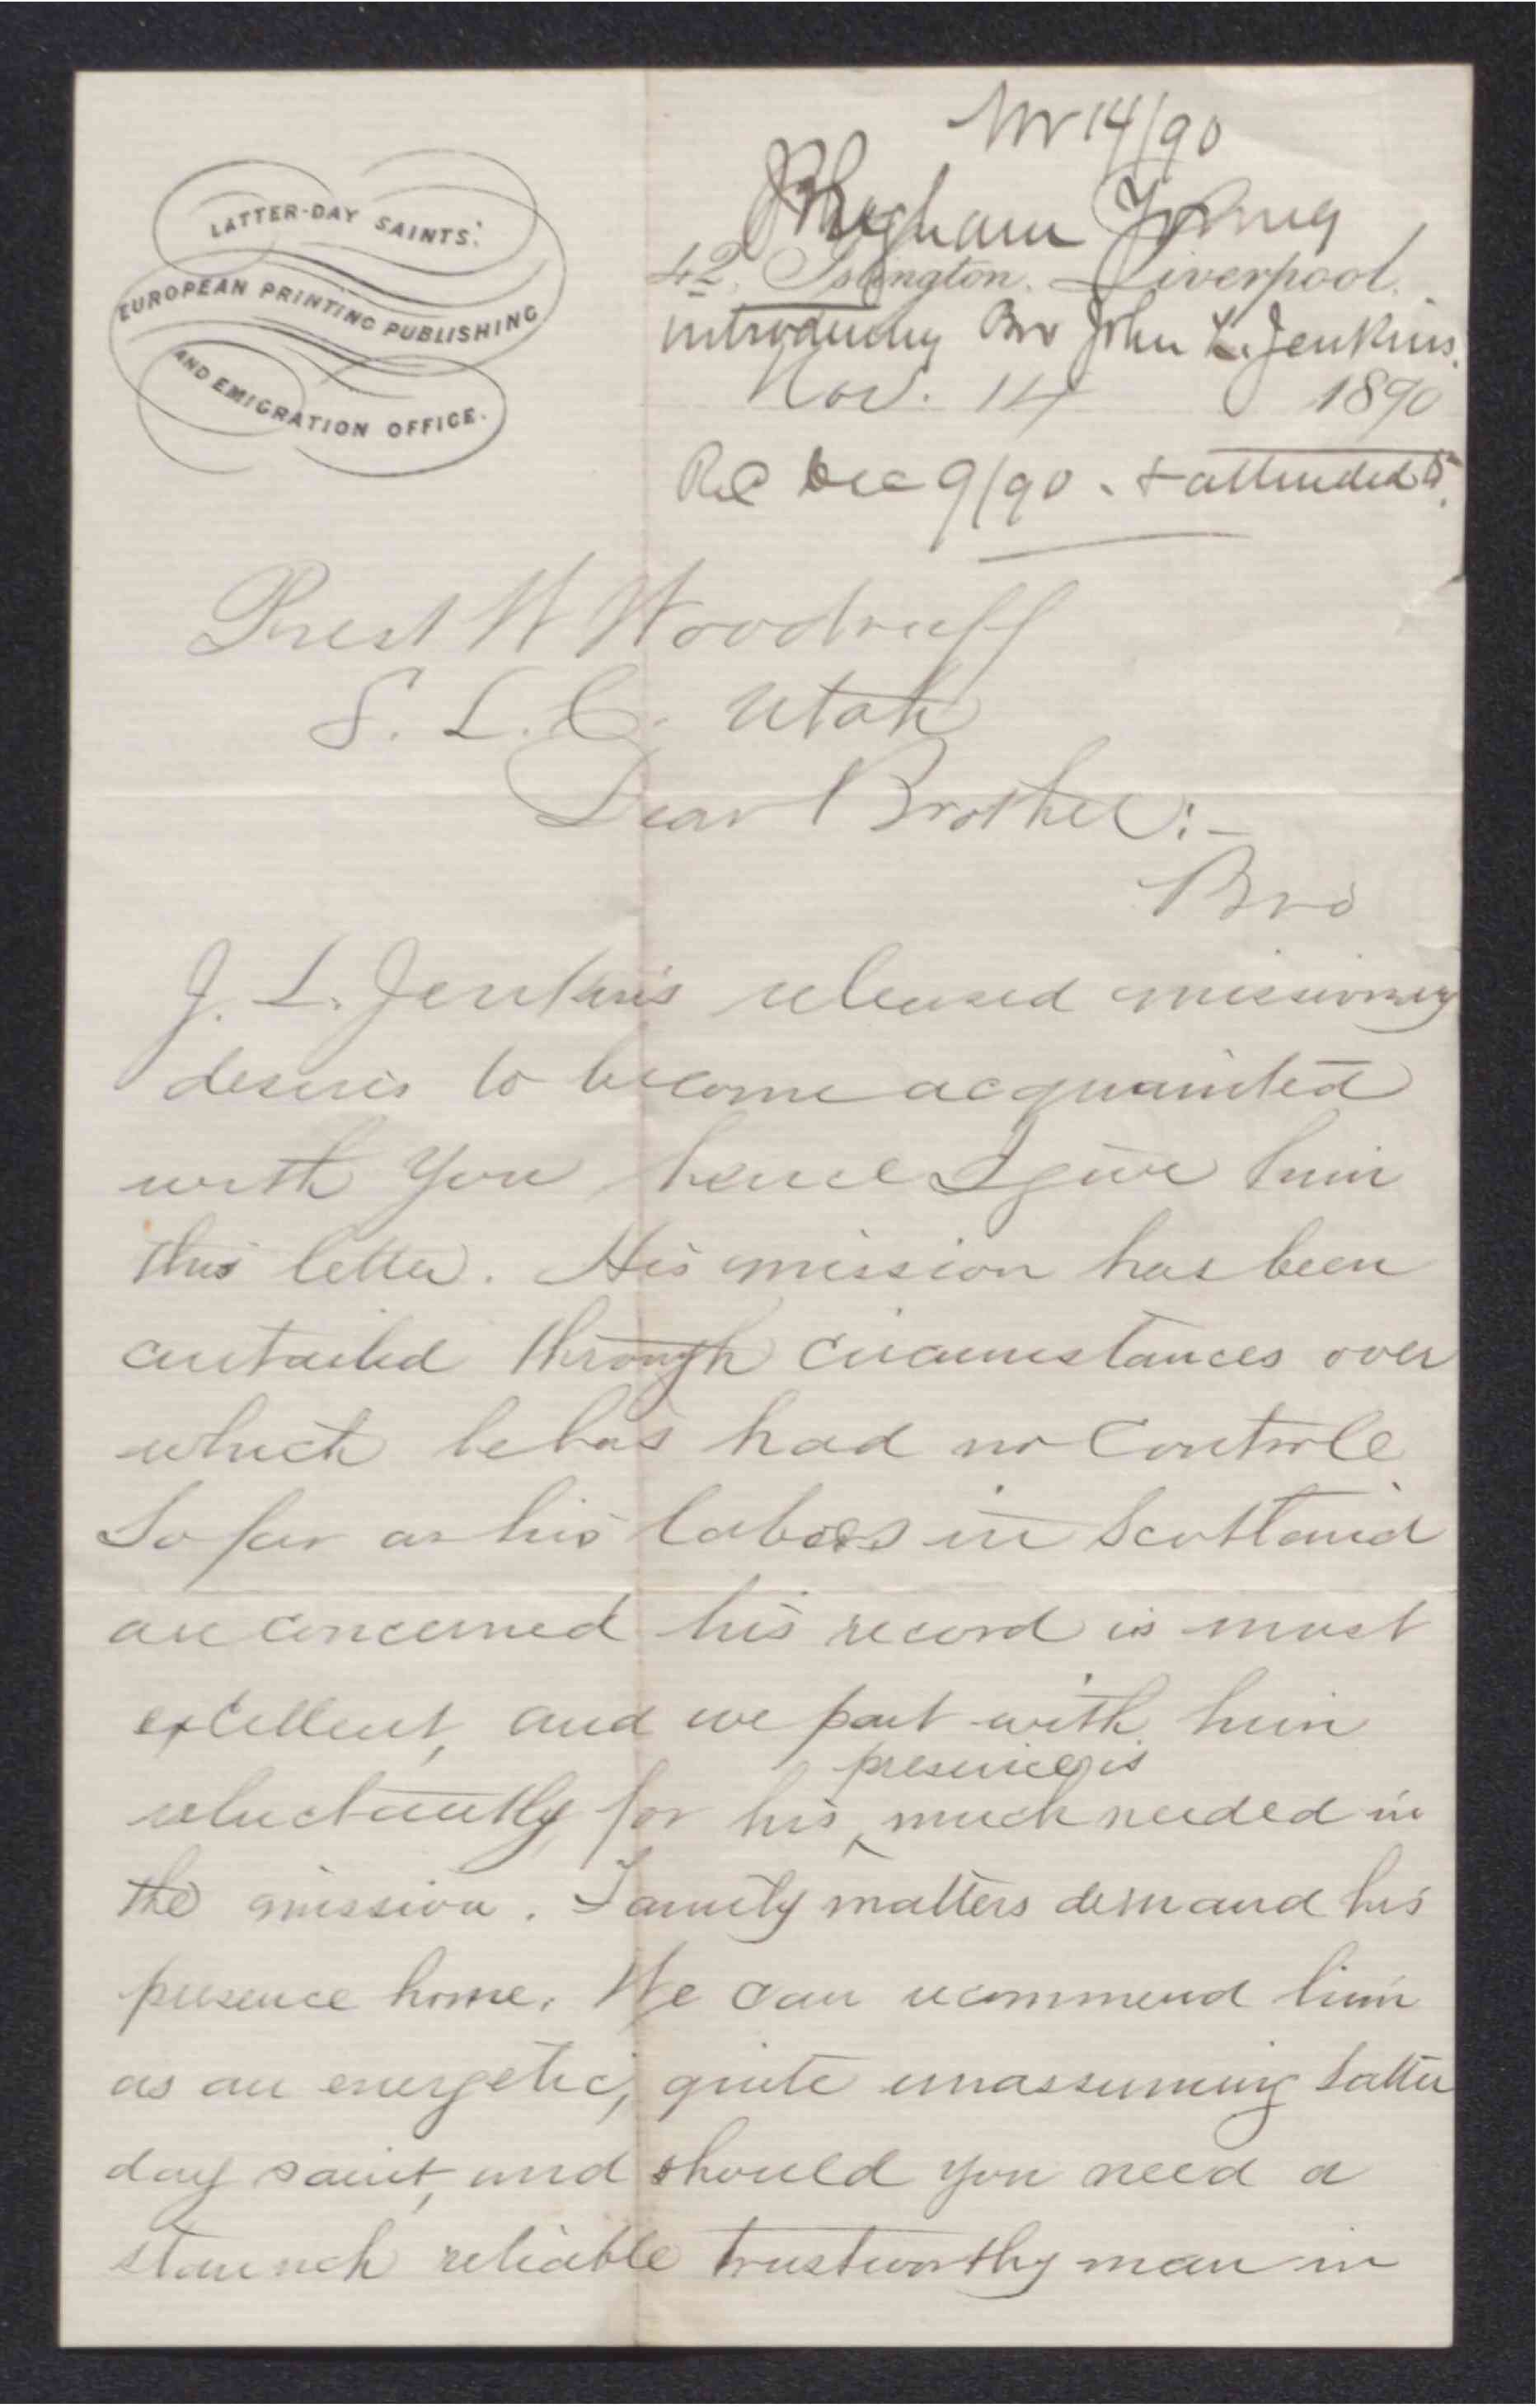 LATTER-DAY SAINTS'
EUROPEAN PRINTING PUBLISHING
AND EMIGRATION OFFICE.
Nov 14/90
Brigham Young
42, Islington, Liverpool.
introducing Bro John L. Jenkins.
Nov. 14 1890
Rec Dec 9/90. & attended to.
Prest W Woodruff
S. L. C. Utah
Dear Brother:-
Bro
J. L. Jenkins released missionary
desires to become acquainted
with you hence I give him
this letter. His mission has been
curtailed through circumstances over
which he has had no controle
So far as his labors in Scotland
are concerned his record is most
excellent, and we part with him
presence is
reluctantly for his ^ much needed in
the mission. Family matters demand his
presence home. We can recommend him
as an energetic, quite unassuming Latter
day saint, and should you need a
staunch reliable trustworthy man in